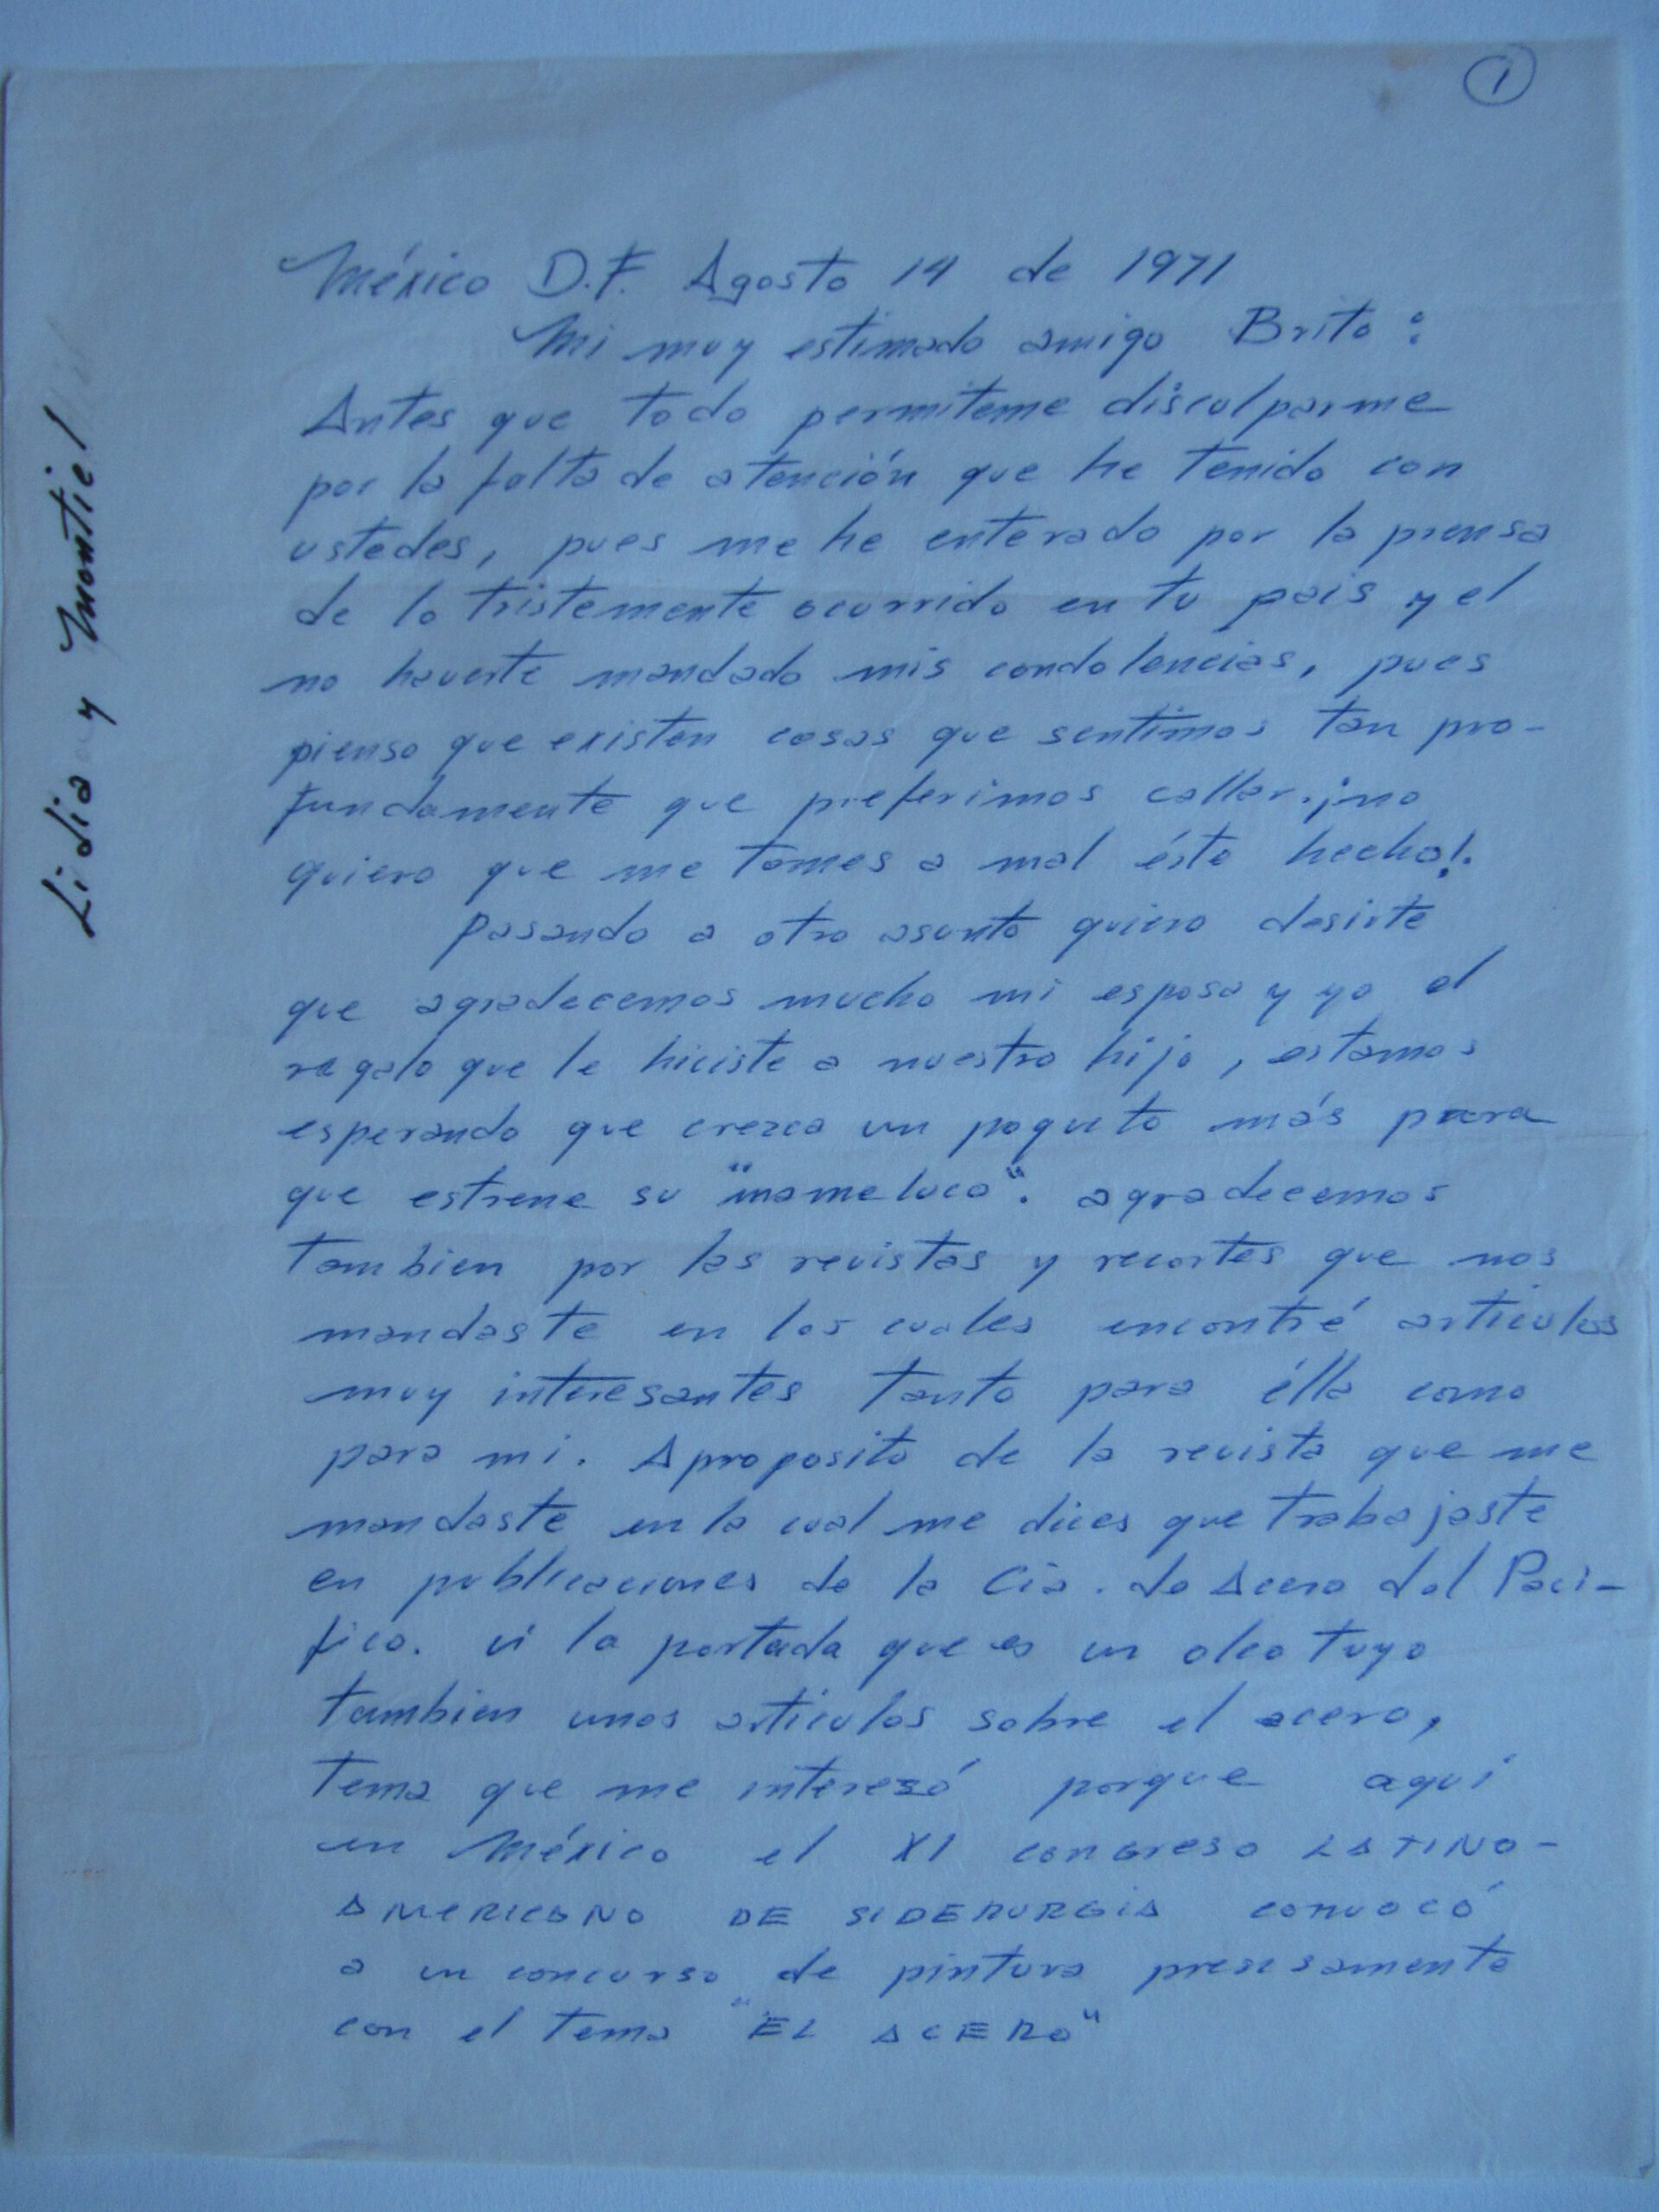 1
México D.F. Agosto 14 de 1971
Mi muy estimado amigo Brito:
Antes que todo permiteme disculparme
por la falta de atención que he tenido con
ustedes, pues me he enterado por la prensa
de lo tristemente ocurrido en tu pais y el
no haverte mandado mis condolencias, pues
pienso que existen cosas que sentimos tan pro-
fundamente que preferimos callar. ¡no
quiero que me tomes a mal éste hecho!.
Pasando a otro asunto quiero desirte
que agradecemos mucho mi esposa y yo el
regalo que le hiciste a nuestro hijo, estamos
esperando que crezca un poquito más para
que estrene su "mameluco". agradecemos
tambien por las revistas y recortes que nos
mandaste en los cuales encontré articulos
muy interesantes tanto para élla como
para mi. Aproposito de la revista que me
mandaste en la cual me dices que trabajaste
en publicaciones de la Cia. de Acero del Paci-
fico. vi la portada que es un oleo tuyo
tambien unos articulos sobre el acero,
tema que me interesó porque aquí
en México el XI congreso LATINO-
AMERICANO DE SIDERURGIA convocó
a un concurso de pintura presisamente
con el tema "EL ACERO"
Lidia y Montiel